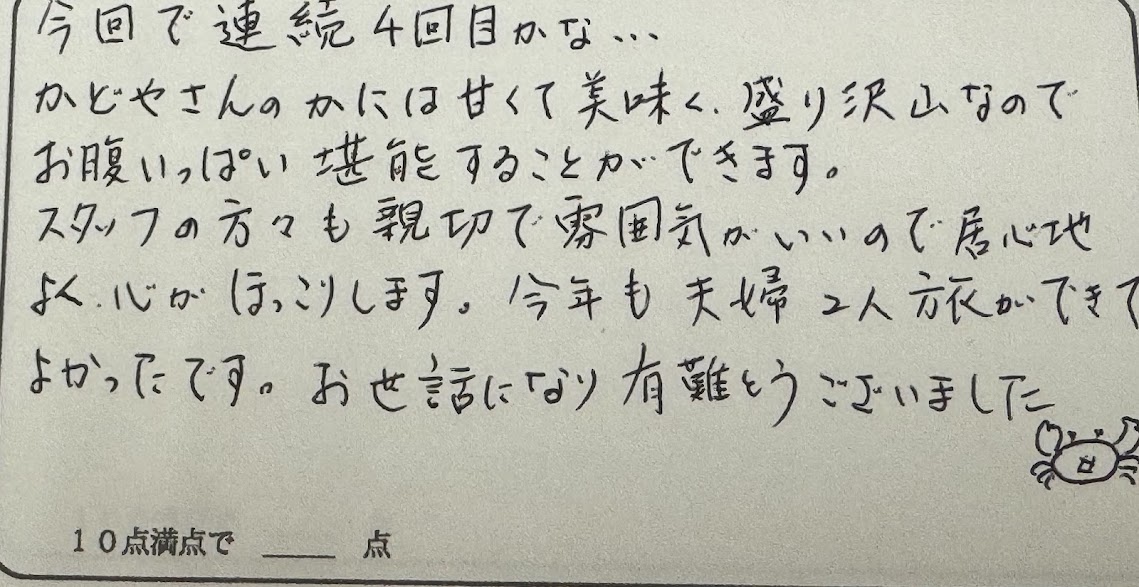 今回で連続4回目かな…
かどやさんのかには甘くて美味く、盛り沢山なので
お腹いっぱい堪能することができます。
スタッフの方々も親切で雰囲気がいいので居心地
よく、心がほっこりします。今年も夫婦2人旅ができて
よかったです。お世話になり有難とうございました
10点満点で ____ 点